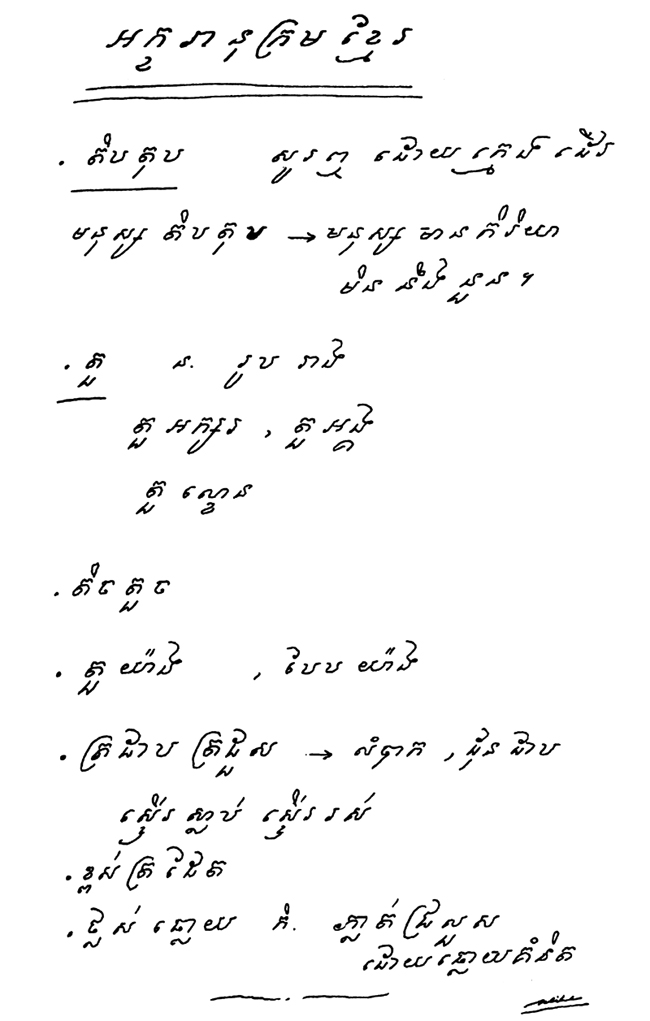 អក្ខរានុក្រមខ្មែរ
. តិបតុប សូរឮ ដោយក្មេងដើរ
មនុស្ស តិបតុប → មនុស្ស មានកិរិយា
មិន នឹងនួន ។
. តួ ន. រូប រាង
តួ អក្សរ , តួ អង្គ
តួ ល្ខោន
. តិចតួច
. តួ យ៉ាង , បែប យ៉ាង
. ត្រដាប ត្រដួស → លំបាក , ដុនដាប
ស្ទើរ ស្លាប់ ស្ទើរ រស់
. ខ្ពស់ ត្រដែត
. ធ្លស់ ធ្លោយ កិ. ភ្លាត់ ជ្រួស
ដោយ ធ្លោយ គំនិត